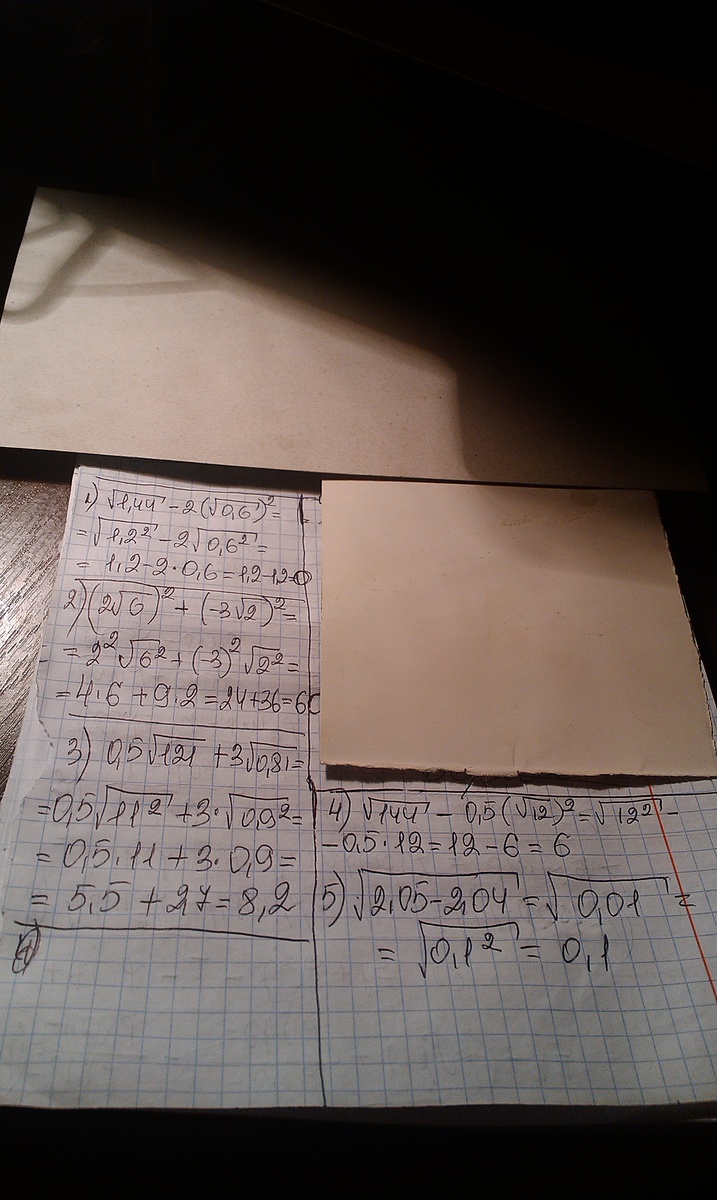 1) √1,44 - 2(√0,6)² =
= √1,2² - 2√0,6² =
= 1,2-2·0,6=1,2-1,2=0
2) (2√6)² + (-3√2)² =
= 2²√6² + (-3)²√2² =
= 4·6 + 9·2 = 24+36=60
3) 0,5√121 + 3√0,81 =
=0,5√11² + 3·√0,9² =
= 0,5·11 + 3·0,9 =
= 5,5 + 27 = 8,2
4) √144 - 0,5(√12)² = √12² -
- 0,5·12 = 12 - 6 = 6
5) √2,05-2,04 = √0,01 =
= √0,1² = 0,1